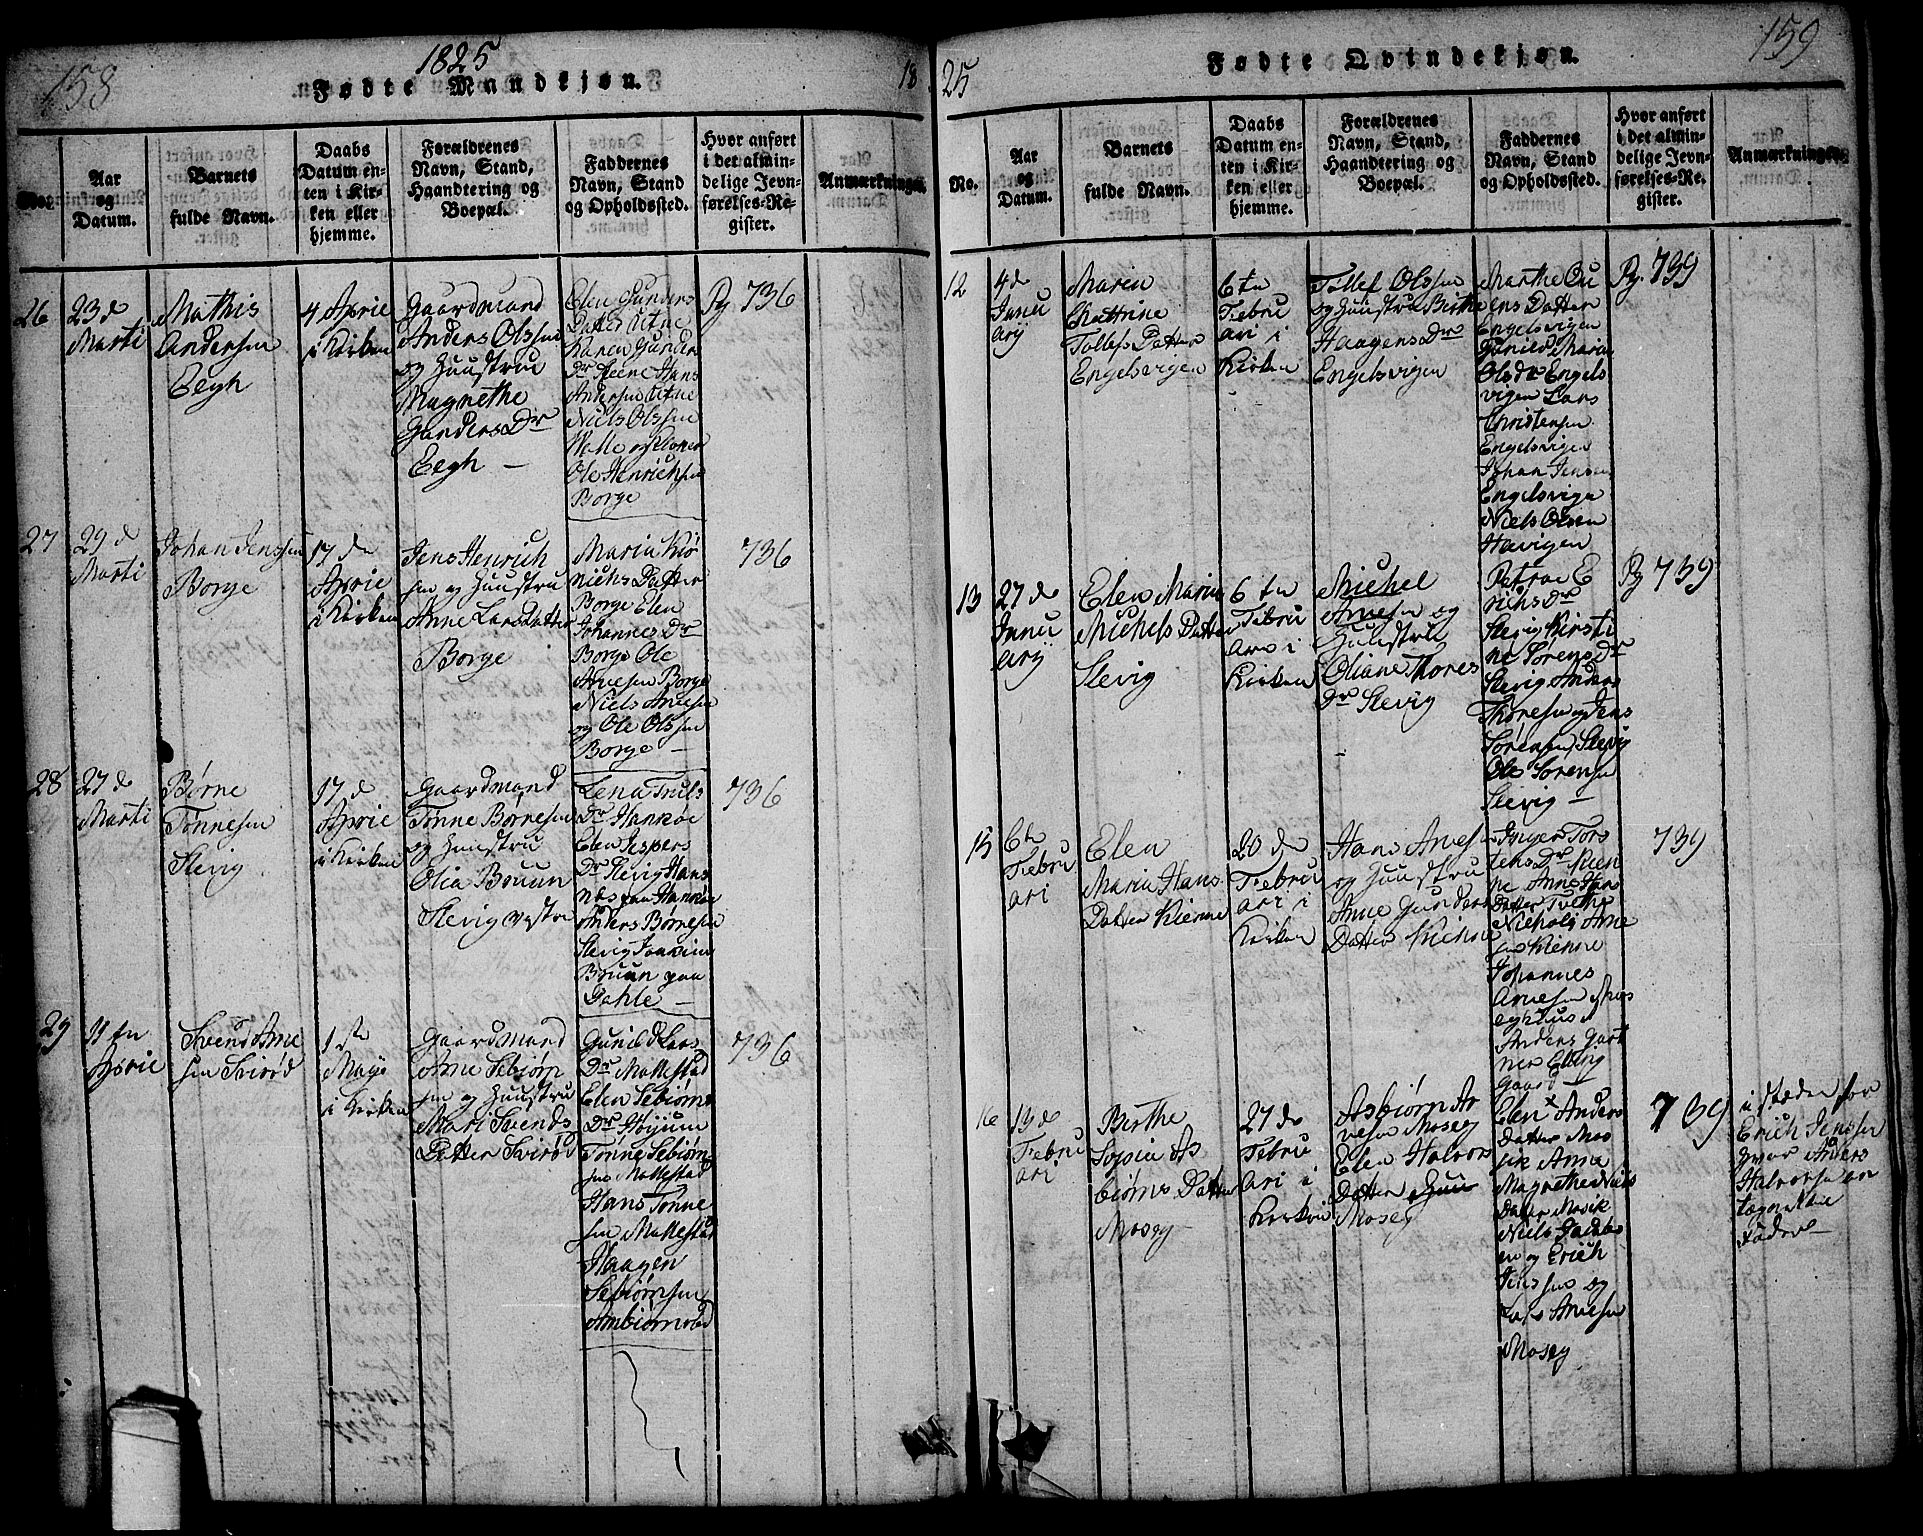 158
1825
Fødte Mandkjøn.
No.
Aar
og
Datum.
Barnets
fulde Navn.
Daabs
Datum en-
ten i Kir-
ken eller
hjemme.
Forældrenes
Navn, Stand,
Haandtering og
Boepæl.
Faddernes
Navn, Stand
og Opholdssted.
Hvor anført
i det almin-
delige Jevn-
førelses-Re-
gister.
Anmærkninger.
26
23 de
Marti
Mathis
Andersen
Eegh
4 Aprie
i Kirken
Gaardmand
Anders Olssen
og Huustru
Magnethe
Gunders Dr
Eegh
Elen Gunders
Datter Utne
Karen Gunders
Dr Kiene Hans
Andersen Utne
Niels Olssen
Ole Henrichsen
Borge
Pg 736
27
29 de
Marti
Johan Jenssen
Borge
17 de
Aprie
i Kirken
Jens Henrich
sen og Huustru
Anne Lars Datter
Borge
Maria
Datter
Borge Elen
Johannes Dr
Borge Ole
Arnesen Borge
Niels Arnesen
og Ole Olssen
Borge
736
28
27 de
Marti
Børne
Tønnesen
Slevig
17 de
Aprie
i Kirken
Gaardmand
Tønne Børnesen
og Huustru
Olia Bruun
Slevig vestre
Lena Truls
Dr Hankøe
Elen Jespers
Dr Slevig Hans
Næs paa Hankøe
Anders Børnesen
Slevig Joakim
Bruun paa
Dahle
736
29
11 tn
Aprie
Svend Arne
sen Svirød
1 st
Maye
i Kirken
Gaardmand
Arne Sebiørn
sen og Huustru
Mari Svends
Datter Svirød
Gunild Lars
Dr Mallestad
Elen Sebiørns
Dr Høyum
Tønne Sebiørn
sen Mallestad
Hans Tønne
sen Mallestad
Haagen
Sebiørnsen
Ambiørnrød
736
18 25
Fødte Qvindekjøn.
159
No.
Aar
og
Datum.
Barnets
fulde Navn.
Daabs
Datum en-
ten i Kir-
ken eller
hjemme.
Forældrenes
Navn, Stand,
Haandtering og
Boepæl.
Faddernes
Navn, Stand
og Opholdssted.
Hvor anført
i det almin-
delige Jevn-
førelses-Re-
gister.
Anmærkninger.
12
4 de
Janu
arij
Maren
Chattrine
Tollefs Datter
Engelsvigen
6 tn
Febru
ari i
Kirken
Tollef Olssen
og Huustru Birthe
Haagens Dr
Engelsvigen
Marthe
Datter
Engelsvigen
Gunild Maria
Ols Dr Engels
vigen Lars
Christensen
Engelsvigen
Johan Jensen
Engelsvigen
Niels Olsen
Havigen
Pg. 739
13
27 de
Janu
arij
Elen Maria
Michels Datter
Slevig
6 tn
Febru
ari i
Kirken
Michel
Arnesen og
Huustru
Oliane Thores
Dr Slevig
Petrae E
richs Dr
Slevig Kirsti
ne Sørens Dr
Slevig Anders
Thoresen og Jens
Sørensen, Slevig
Ole Sørensen
Slevig
Pg 739
15
6 tn
Febru
ari
Elen
Maria Hans
Datter Kienne
20 de
Febru
ari i
Kirken
Hans Arnesen
og Huustru
Anne Gunders
Datter Kienne
Inger Tors
tens Dr Kien
ne Anne Hans
Datter
Nicholai Arne
sen Kienne
Johannes
Arnesen
Anders Gart
ner Elling
gaard
739
16
19 de
Febru
ari
Berthe
Sopia As
biørns Datter
Moseg
27 de
Febru
ari i
Kirken
Asbiørn Ar
nesen Moseg
Elen Halvors
Datter
Moseg
Elen Anders
Datter Mos
sik Anna
Magrethe Niels
Datter Mosik
Niels Jacobs
en og Erich
Jenssen og
Lars Arnesen
Moseg
739
i Steden for
Erich Jenssen
hvor Anders
Halvorsen an
tegnet som
Fadder